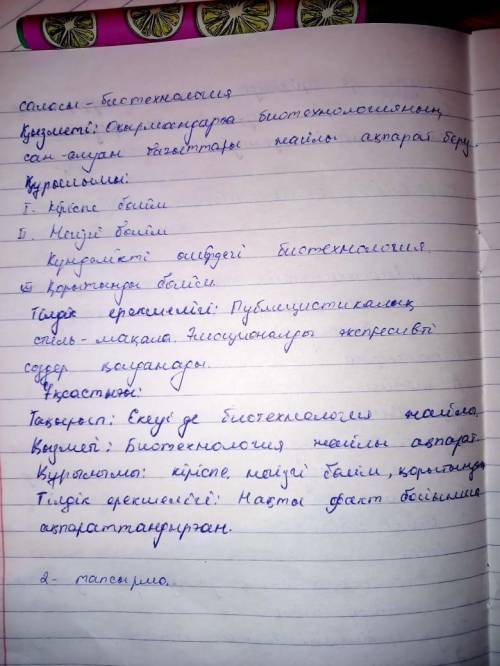 саласы - биотехнология
Қызметі: Оқырмандарға биотехнологияның
сан-алуан бағыттары жайлы ақпарат беру.
Құрылымы:
I. Кіріспе бөлім
II. Негізгі бөлім
Күнделікті өмірдегі биотехнология
III Қорытынды бөлім
Тілдік ерекшелігі: Публицистикалық
стиль - мақала. Эмоционалды экспресивті
сөздер қолданады.
Ұқсастығы:
Тақырып: Екеуі де биотехнология жайлы
Қызметі: Биотехнология жайлы ақпарат.
Құрылымы: кіріспе, негізгі бөлім, қорытынды
Тілдік ерекшелігі: Нақты факт бойынша
ақпараттандырған.
2 - тапсырма.